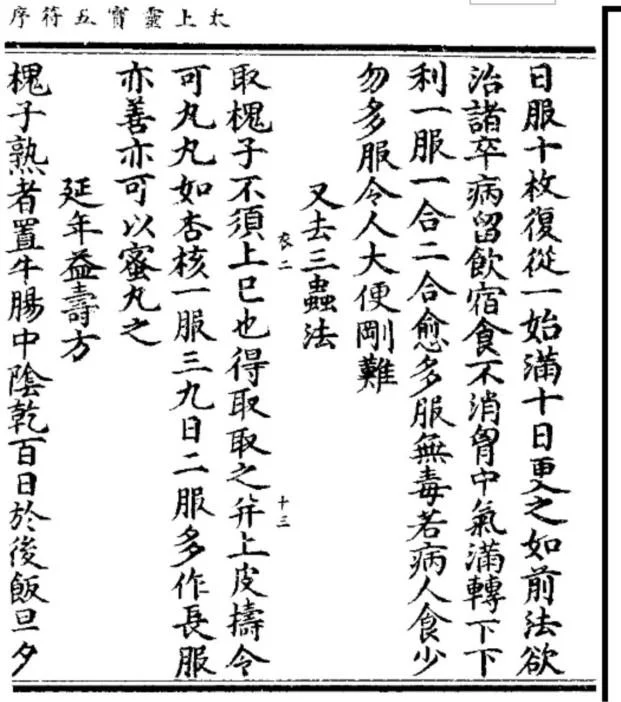 太上靈寶五符序
日服十枚復從一始滿十日更之如前法欲
治諸卒病留飲宿食不消胷中氣滿轉下下
利一服一合二合愈多服無毒若病人食少
勿多服令人大便剛難
又去三蟲法
衣二
十三
取槐子不須上巳也得取取之并上皮擣令
可丸丸如杏核一服三九日二服多作長服
亦善亦可以蜜丸之
延年益壽方
槐子熟者置牛腸中陰乾百日於後飯旦夕